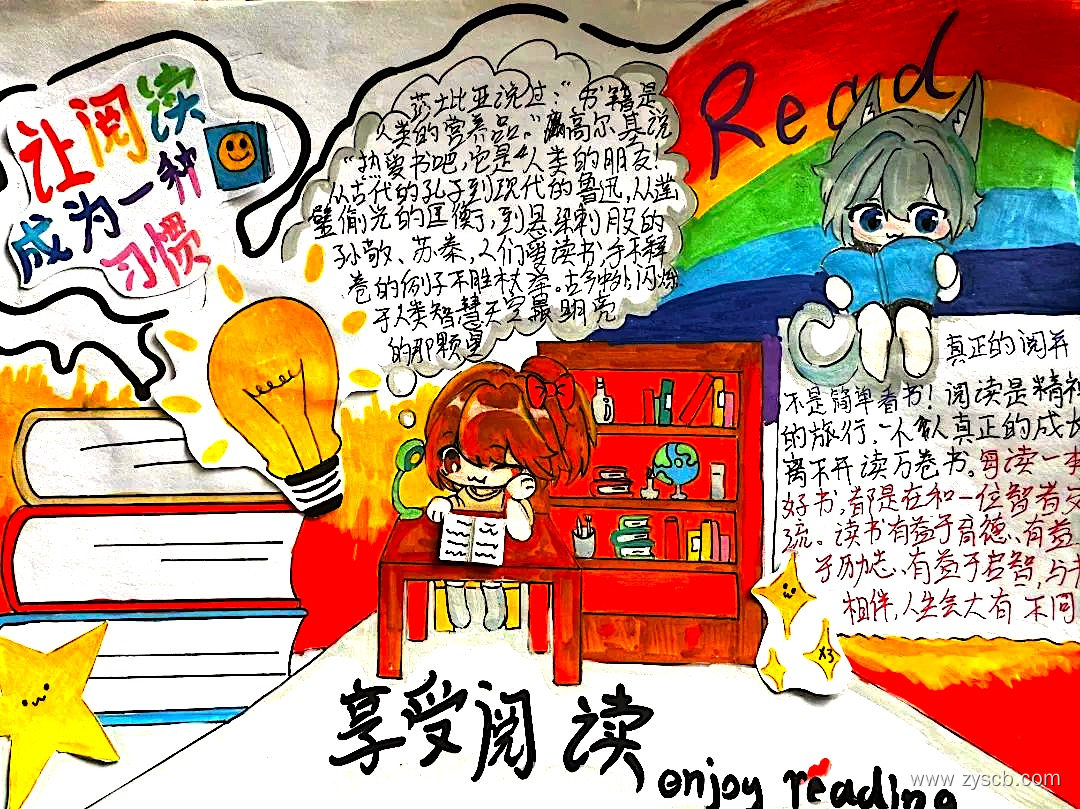 让阅读
成为一种
习惯
莎士比亚说过："书籍是
人类的营养品。"高尔基说
"热爱书吧，它是人类的朋友！
从古代的孔子到现代的鲁迅，从凿
壁偷光的匡衡，到悬梁刺股的
孙敬、苏秦，人们爱读书，手不释
卷的例子不胜枚举。古今中外，闪烁
于人类智慧天空最明亮
的那颗星
Read
真正的阅并
不是简单看书！阅读是精神
的旅行，一个人真正的成长
离不开读万卷书。每读一本
好书，都是在和一位智者交
流。读书有益于育德、有益
于励志、有益于启智，与书
相伴，人生会大有不同
x3
享受阅读
enjoy reading
www.zyscb.com